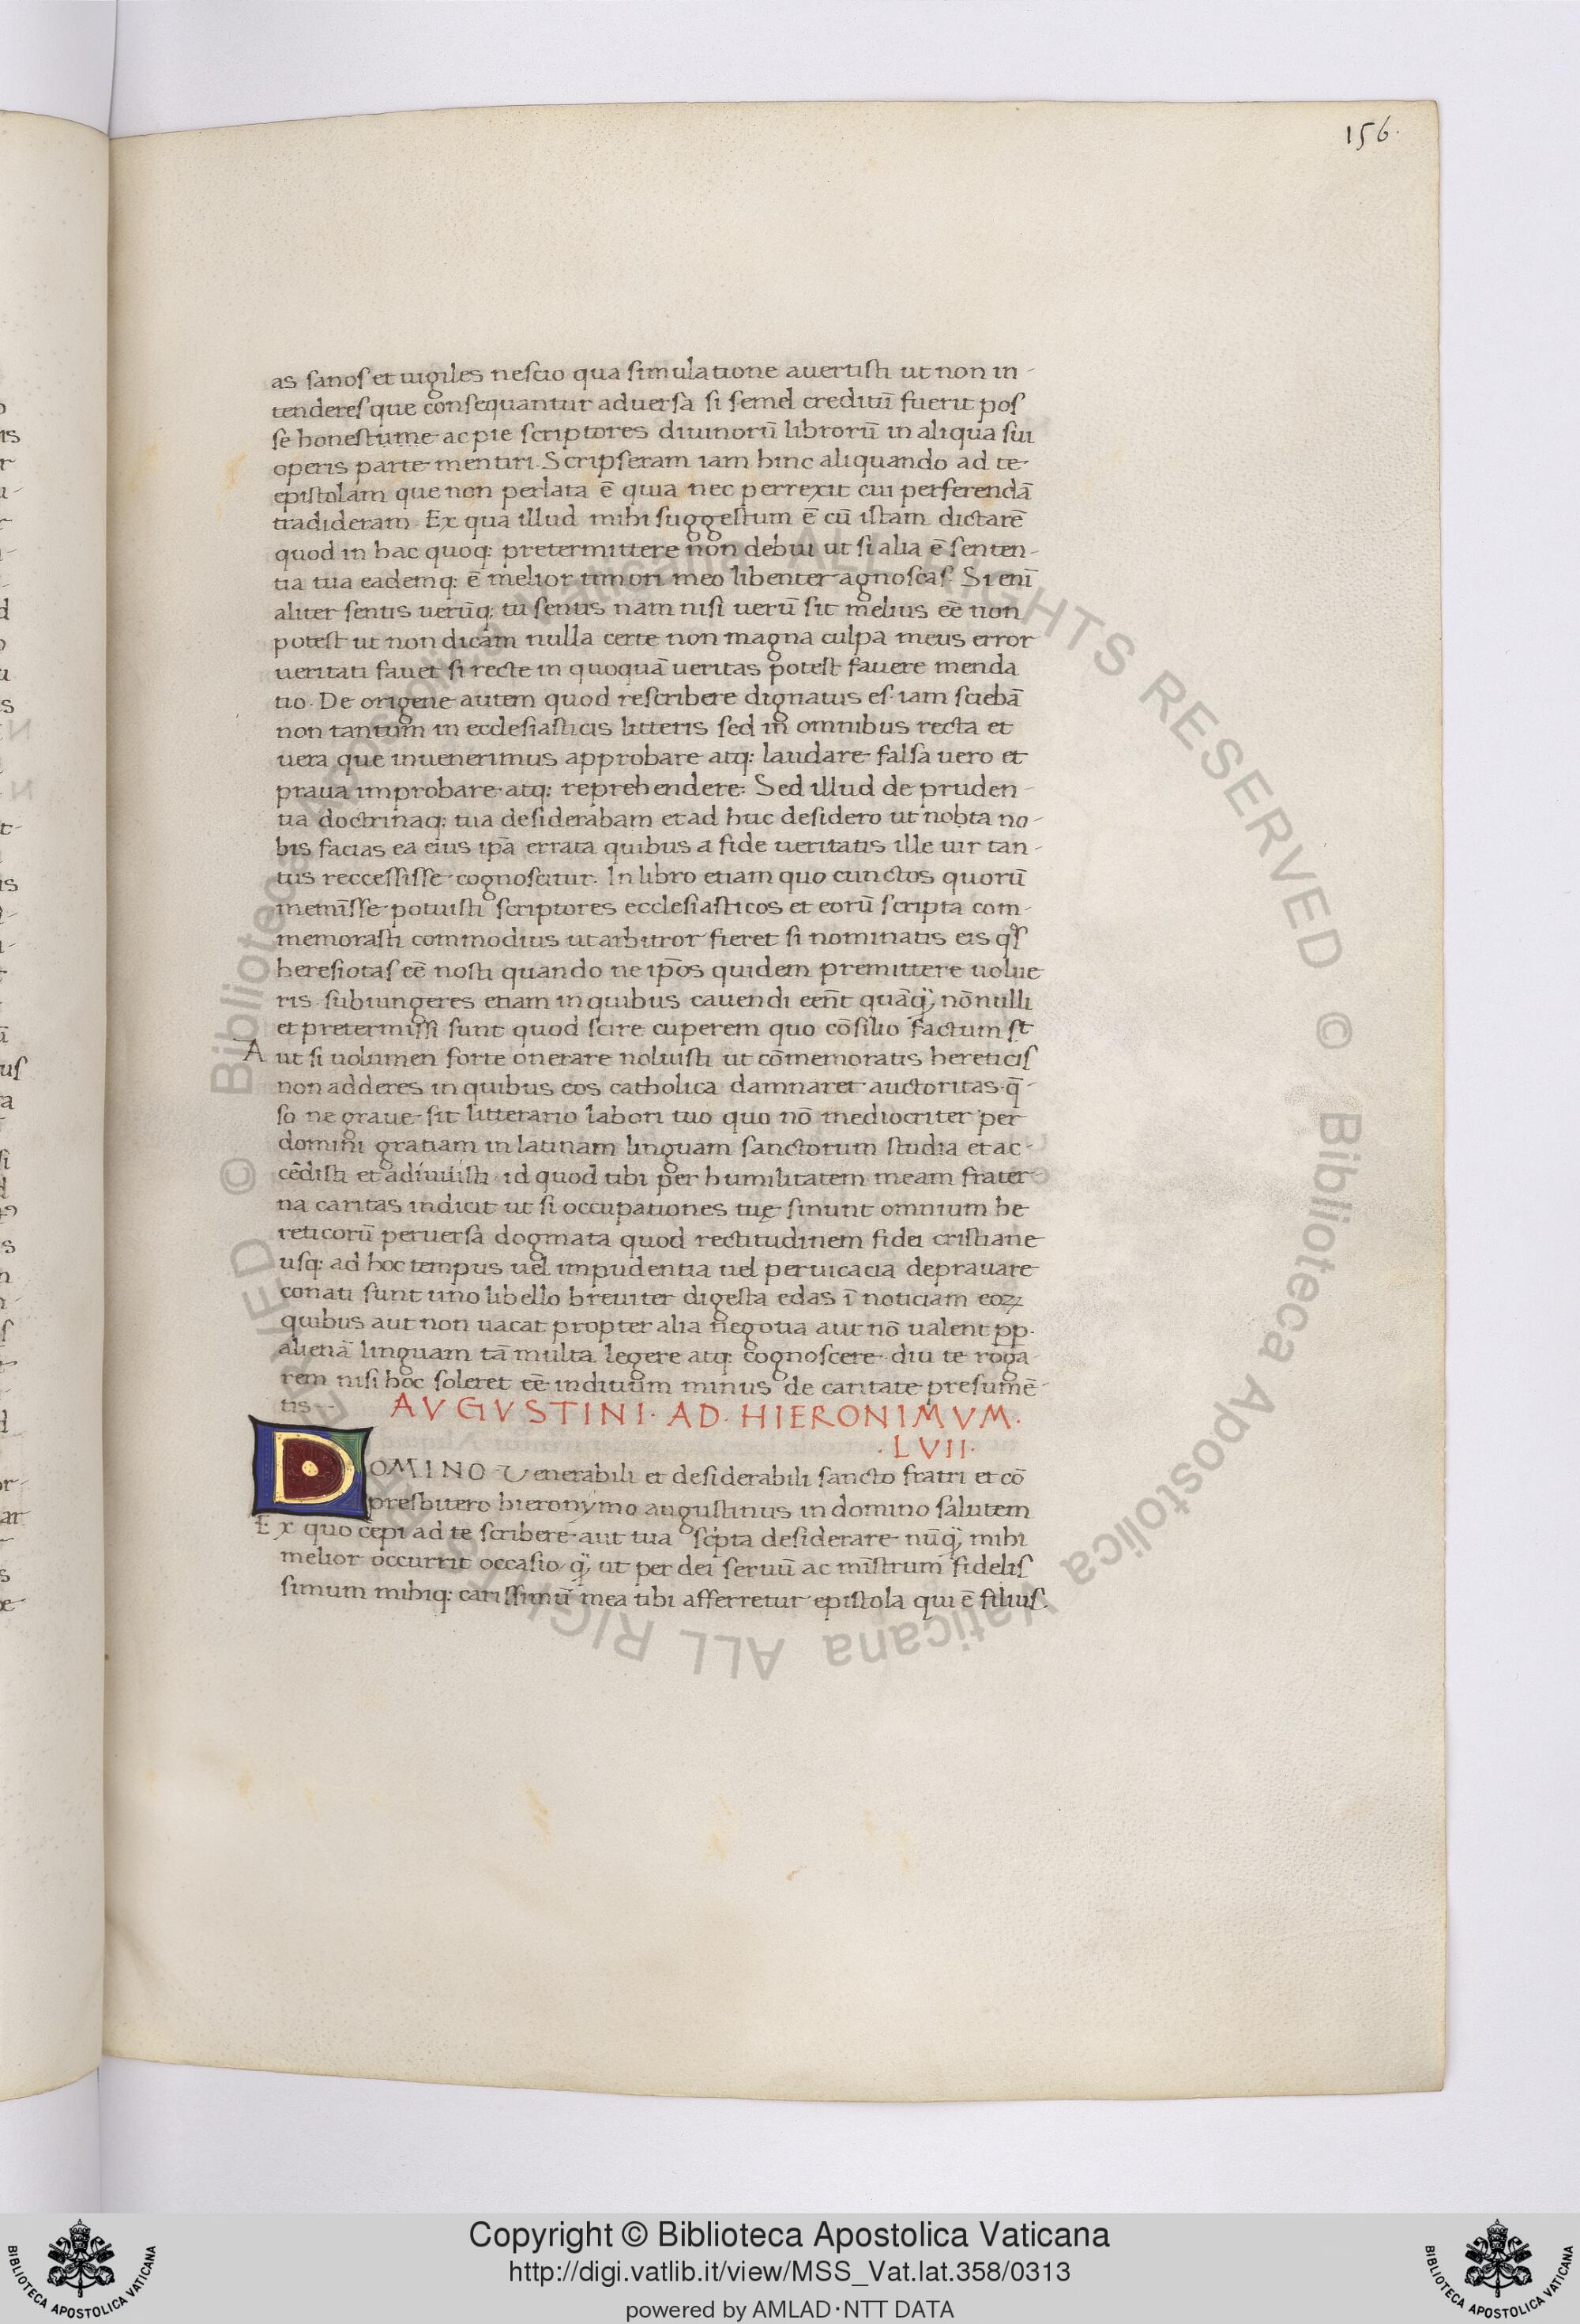 156.
as sanos et uigiles nescio qua simulatione auertisti ut non in-
tenderes que consequantur aduersa si semel credituī fuerit pos
se honestume ac pie scriptores diuinorū librorū in aliqua sui
operis parte mentiri. Scripseram iam hinc aliquando ad te
epistolam que non perlata ē quia nec perrexit cui perferendā
tradideram. Ex qua illud mihi suggestum ē cū istam dictarē
quod in hac quoq: pretermittere non debui ut si alia ē senten-
tia tua eademq: ē melior timori meo libenter agnoscas. Si enī
aliter sentis uerūq: tu sentis nam nisi uerū sit melius eē non
potest ut non dicam nulla certe non magna culpa meus error
ueritati fauet si recte in quoquā ueritas potest fauere menda
tio. De origene autem quod rescribere dignatus es. iam sciebā
non tantum in ecclesiasticis litteris sed in omnibus recta et
uera que inuenerimus approbare atq: laudare falsa uero et
praua improbare atq: reprehendere: Sed illud de pruden-
tia doctrinaq: tua desiderabam et ad huc desidero ut nobta no-
bis facias ea eius ipā errata quibus a fide ueritatis ille uir tan-
tus reccessisse cognoscitur. In libro etiam quo cunctos quorū
memīsse potuisti scriptores ecclesiasticos et eorū scripta com-
memorasti commodius ut arbitror fieret si nominatis eis qͦs
heresiotas eē nosti quando ne ipōs quidem premittere uolue
ris. subiungeres etiam in quibus cauendi eēnt quāq̃, nōnulli
et pretermissi sunt quod scire cuperem quo cōsilio factum st
A ut si uolumen forte onerare noluisti ut cōmemoratis hereticis
non adderes in quibus eos catholica damnaret auctoritas. q̄-
so ne graue sit litterario labori tuo quo nō mediocriter per
domini gratiam in latinam linguam sanctorum studia et ac-
cēdisti et adiuuisti id quod tibi per humilitatem meam frater
na caritas indicit ut si occupationes tuę sinunt omnium he
reticorū peruersa dogmata quod rectitudinem fidei cristiane
usq: ad hoc tempus uel impudentia uel peruicacia deprauare
conati sunt uno libello breuiter digesta edas ī noticiam eoꝝ
quibus aut non uacat propter alia negotia aut nō ualent pp.
alienā linguam tā multa legere atq: cognoscere. diu te roga-
rem nisi hoc soleret eē inditium minus de caritate presumē-
tis--
AVGVSTINI. AD. HIERONIMVM.
.LVII.
DOMINO Venerabili et desiderabili sancto fratri et cō
presbitero hieronymo augustinus in domino salutem
Ex quo cepi ad te scribere aut tua scͥpta desiderare nūq̃, mihi
melior occurrit occasio q̃, ut per dei seruū ac mīstrum fidelis
simum mihiq: carissimū mea tibi afferretur epistola qui ē filius.
Copyright © Biblioteca Apostolica Vaticana
http://digi.vatlib.it/view/MSS_Vat.lat.358/0313
powered by AMLAD·NTT DATA
BIBLIOTECA APOSTOLICA VATICANA
BIBLIOTECA APOSTOLICA VATICANA
© Biblioteca Apostolica Vaticana ALL RIGHTS RESERVED © Biblioteca Apostolica Vaticana ALL RIGHTS RESERVED